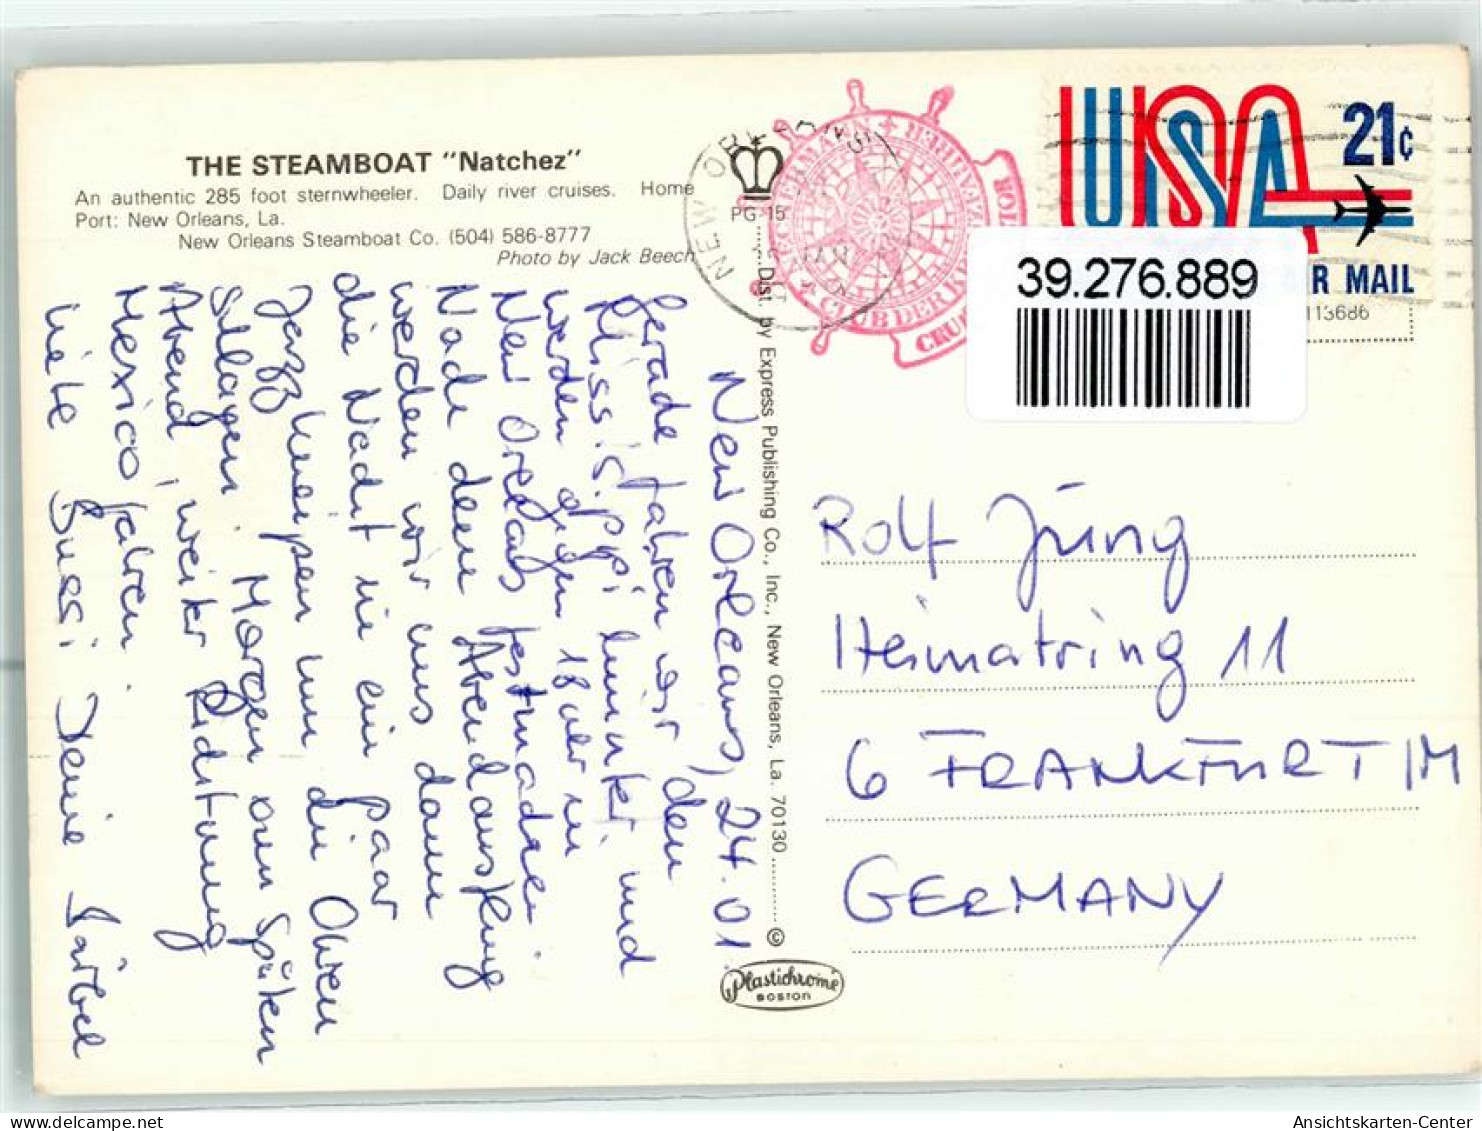 THE STEAMBOAT "Natchez"
An authentic 285 foot sternwheeler. Daily river cruises. Home
Port: New Orleans, La.
New Orleans Steamboat Co. (504) 586-8777
Photo by Jack Beech
New Orleans, 24.01.
Gerade fahren wir den
Mississippi hinunter und
werden gegen 18 Uhr in
New Orleans festmachen
Nach dem Abendausflug
werden wir uns dann
die Nacht in ein paar
Jazz Kneipen um die Ohren
schlagen. Morgen am späten
Abend, weiter Richtung
Mexico fahren.
Susi Deine Bärbel
PG 15
Dist. by Express Publishing Co., Inc., New Orleans, La. 70130 ©
Plastichrome
BOSTON
NEW ORLEANS
CLUB DER
USA 21c
AIR MAIL
39.276.889
113686
Rolf Jung
Heimatring 11
6 FRANKFURT/M
GERMANY
Ansichtskarten-Center